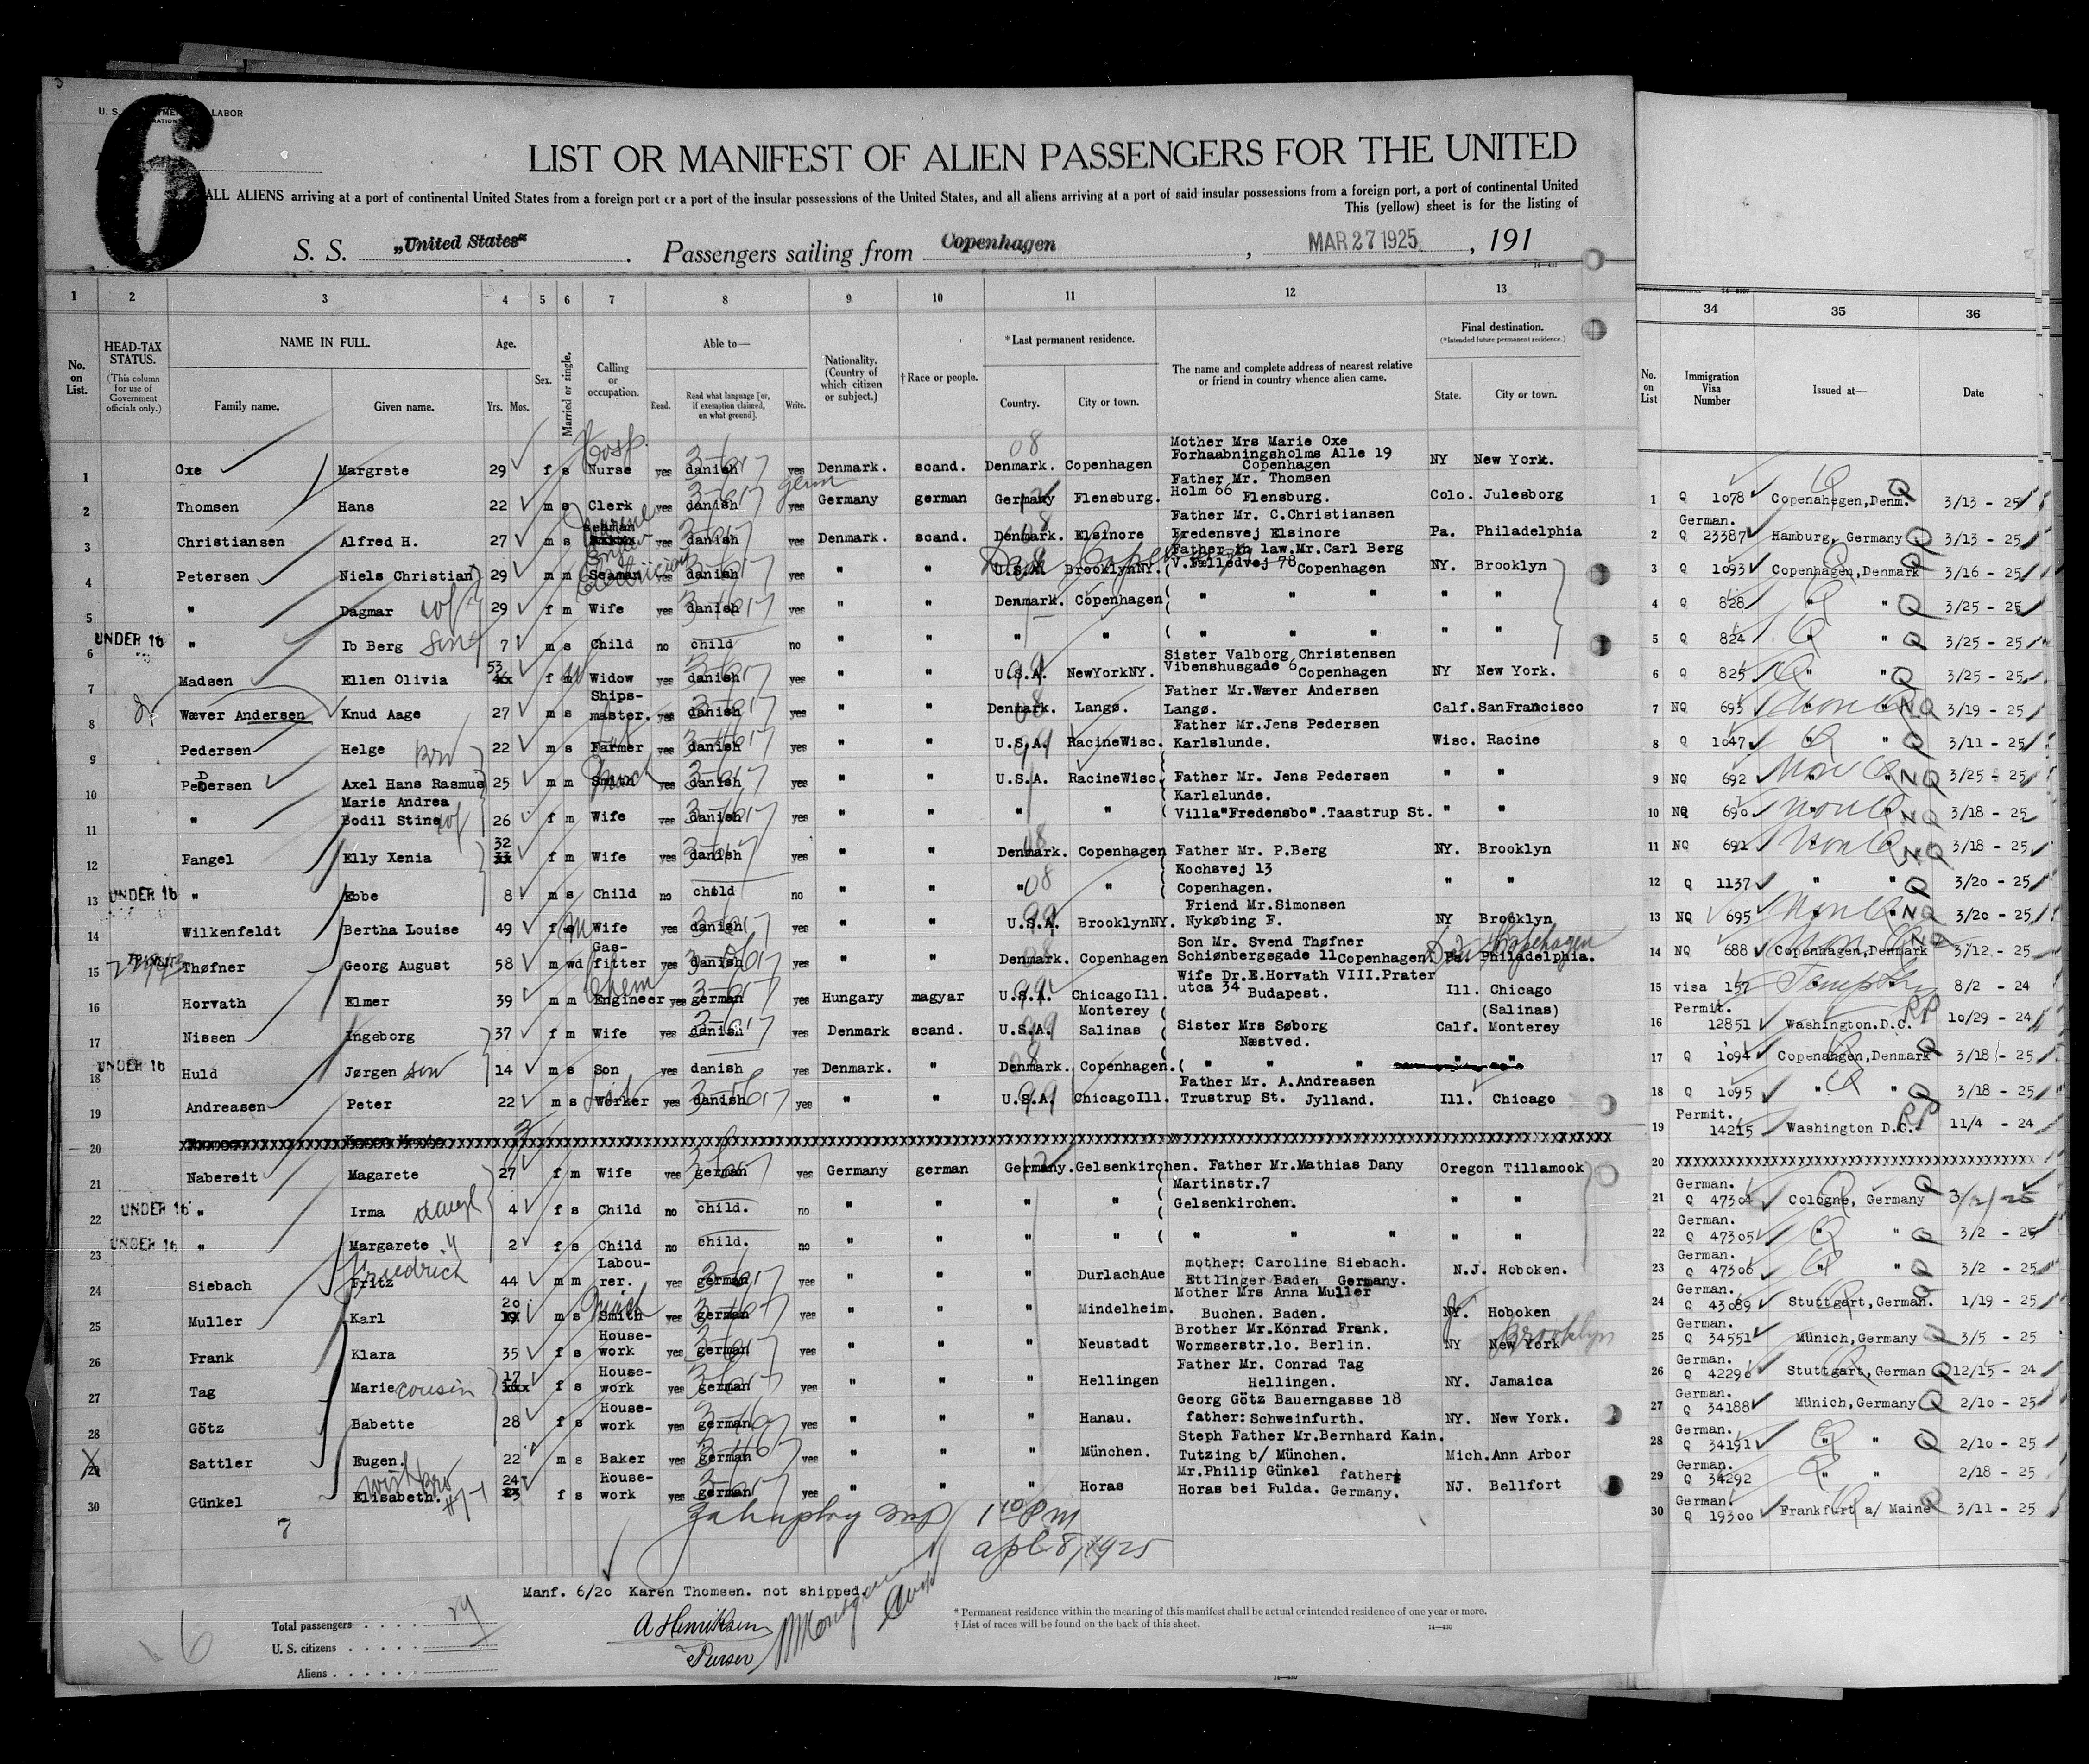 6
U. S. LABOR
LIST OR MANIFEST OF ALIEN PASSENGERS FOR THE UNITED
ALL ALIENS arriving at a port of continental United States from a foreign port or a port of the insular possessions of the United States, and all aliens arriving at a port of said insular possessions from a foreign port, a port of continental United
This (yellow) sheet is for the listing of
S. S. „United States" . Passengers sailing from Copenhagen , MAR 27 1925 , 191
1 2 3 4 5 6 7 8 9 10 11 12 13
34 35 36
No. on List. HEAD-TAX STATUS. (This column for use of Government officials only.) NAME IN FULL. Family name. Given name. Age. Yrs. Mos. Sex. Married or single. Calling or occupation. Able to— Read. Read what language [or, if exemption claimed, on what ground]. Write. Nationality. (Country of which citizen or subject.) † Race or people. *Last permanent residence. Country. City or town. The name and complete address of nearest relative or friend in country whence alien came. Final destination. (*Intended future permanent residence.) State. City or town.
No. on List Immigration Visa Number Issued at— Date
1 Oxe Margrete 29 f s Hosp. Nurse yes danish yes Denmark. scand. Denmark. Copenhagen Mother Mrs Marie Oxe Forhaabningsholms Alle 19 Copenhagen NY New York.
2 Thomsen Hans 22 m s Clerk yes danish germ yes Germany german Germany Flensburg. Father Mr. Thomsen Holm 66 Flensburg. Colo. Julesborg
3 Christiansen Alfred H. 27 m s seaman yes danish yes Denmark. scand. Denmark. Elsinore Father Mr. C.Christiansen Fredensvej Elsinore Pa. Philadelphia
4 Petersen Niels Christian 29 m m Seaman yes danish yes " " U.S.A. BrooklynNY. Father in law.Mr.Carl Berg V.Fælledvej 78 Copenhagen NY. Brooklyn
5 " Dagmar wf 29 f m Wife yes danish yes " " Denmark. Copenhagen " " " " "
UNDER 16
6 " Ib Berg son 7 m s Child no child no " " " " " " " " "
7 Madsen Ellen Olivia 53 f w Widow yes danish yes " " U.S.A. NewYorkNY. Sister Valborg Christensen Vibenshusgade 6 Copenhagen NY New York.
8 Wæver Andersen Knud Aage 27 m s Ships-master. yes danish yes " " Denmark. Langø. Father Mr.Wæver Andersen Langø. Calf. SanFrancisco
9 Pedersen Helge Bro 22 m s Farmer yes danish yes " " U.S.A. RacineWisc. Father Mr.Jens Pedersen Karlslunde. Wisc. Racine
10 Pedersen Axel Hans Rasmus 25 m m Smith yes danish yes " " U.S.A. RacineWisc. Father Mr. Jens Pedersen Karlslunde. " "
11 " Marie Andrea Bodil Stine wf 26 f m Wife yes danish yes " " " " Villa"Fredensbo".Taastrup St. " "
12 Fangel Elly Xenia 32 f m Wife yes danish yes " " Denmark. Copenhagen Father Mr. P.Berg NY. Brooklyn
UNDER 16
13 " Ebbe 8 m s Child no child no " " " " Kochsvej 13 Copenhagen. " "
14 Wilkenfeldt Bertha Louise 49 f m Wife yes danish yes " " U.S.A. BrooklynNY. Friend Mr.Simonsen Nykøbing F. NY Brooklyn
TRANSIT
15 Thøfner Georg August 58 m wd Gas-fitter yes danish yes " " Denmark. Copenhagen Son Mr. Svend Thøfner Schiønbergsgade 11 Copenhagen. Pa. Philadelphia. Den Copehagen
16 Horvath Elmer 39 m m Chem Engineer yes german yes Hungary magyar U.S.A. ChicagoIll. Wife Dr.E.Horvath VIII.Prater utca 34 Budapest. Ill. Chicago
17 Nissen Ingeborg 37 f m Wife yes danish yes Denmark scand. U.S.A. Monterey Salinas Sister Mrs Søborg Næstved. Calf. (Salinas) Monterey
UNDER 16
18 Huld Jørgen son 14 m s Son yes danish yes Denmark. " Denmark. Copenhagen. " " " " "
19 Andreasen Peter 22 m s Worker yes danish yes " " U.S.A. ChicagoIll. Father Mr. A.Andreasen Trustrup St. Jylland. Ill. Chicago
20
21 Nabereit Magarete 27 f m Wife yes german yes Germany german Germany. Gelsenkirchen. Father Mr.Mathias Dany Martinstr.7 Oregon Tillamook
UNDER 16
22 " Irma daugh 4 f s Child no child. no " " " " Gelsenkirchen. " "
UNDER 16
23 " Margarete " 2 f s Child no child. no " " " " " " " " "
24 Siebach Fritz Friedrich 44 m m Labou-rer. yes german yes " " " DurlachAue mother: Caroline Siebach. Ettlinger Baden Germany. N.J. Hoboken.
25 Muller Karl 20 m s Smith yes german yes " " " Mindelheim. Mother Mrs Anna Muller Buchen. Baden. NY. Hoboken
26 Frank Klara 35 f s House-work yes german yes " " " Neustadt Brother Mr.Konrad Frank. Wormserstr.1o. Berlin. NY New York Brooklyn
27 Tag Marie cousin 17 f s House-work yes german yes " " " Hellingen Father Mr. Conrad Tag Hellingen. NY. Jamaica
28 Götz Babette 28 f s House-work yes german yes " " " Hanau. Georg Götz Bauerngasse 18 father: Schweinfurth. NY. New York.
29 Sattler Eugen. 22 m s Baker yes german yes " " " München. Steph Father Mr.Bernhard Kain. Tutzing b/ München. Mich. Ann Arbor
30 Günkel Elisabeth. 24 f s House-work yes german yes " " " Horas Mr.Philip Günkel father Horas bei Fulda. Germany. NJ. Bellfort
1 Q 1078 Copenahegen,Denm. Q 3/13 - 25
2 German. Q 23387 Hamburg, Germany Q 3/13 - 25
3 Q 1093 Copenhagen,Denmark Q 3/16 - 25
4 Q 828 " " Q 3/25 - 25
5 Q 824 " " Q 3/25 - 25
6 Q 825 " " Q 3/25 - 25
7 NQ 693 Non Q NQ 3/19 - 25
8 Q 1047 " " Q 3/11 - 25
9 NQ 692 Non Q NQ 3/25 - 25
10 NQ 690 Non Q NQ 3/18 - 25
11 NQ 691 Non Q NQ 3/18 - 25
12 Q 1137 " " Q 3/20 - 25
13 NQ 695 Non Q NQ 3/20 - 25
14 NQ 688 Copenhagen,Denmark NQ 3/12 - 25
15 visa 157 8/2 - 24
16 Permit. 12851 Washington.D.C. RP 10/29 - 24
17 Q 1094 Copenangen,Denmark Q 3/18 - 25
18 Q 1095 " " Q 3/18 - 25
19 Permit. 14215 Washington D.C. RP 11/4 - 24
20 xxxxxxxxxxxxxxxxxxxxxxxxxxxxxxxx
21 German. Q 47304 Cologne, Germany Q 3/2/25
22 German. Q 47305 " " Q 3/2 - 25
23 German. Q 47306 " " Q 3/2 - 25
24 German. Q 43089 Stuttgart,German. Q 1/19 - 25
25 German. Q 34551 Münich,Germany Q 3/5 - 25
26 German. Q 42296 Stuttgart,German Q 12/15 - 24
27 German. Q 34188 Münich,Germany Q 2/10 - 25
28 German. Q 34191 " " Q 2/10 - 25
29 German. Q 34292 " " 2/18 - 25
30 German. Q 19300 Frankfurt a/ Maine Q 3/11 - 25
7
1 10 PM
apl 8, 1925
Manf. 6/20 Karen Thomsen. not shipped.
A Henriksen
Purser
Total passengers
U. S. citizens
Aliens
6
* Permanent residence within the meaning of this manifest shall be actual or intended residence of one year or more.
† List of races will be found on the back of this sheet.
14—430